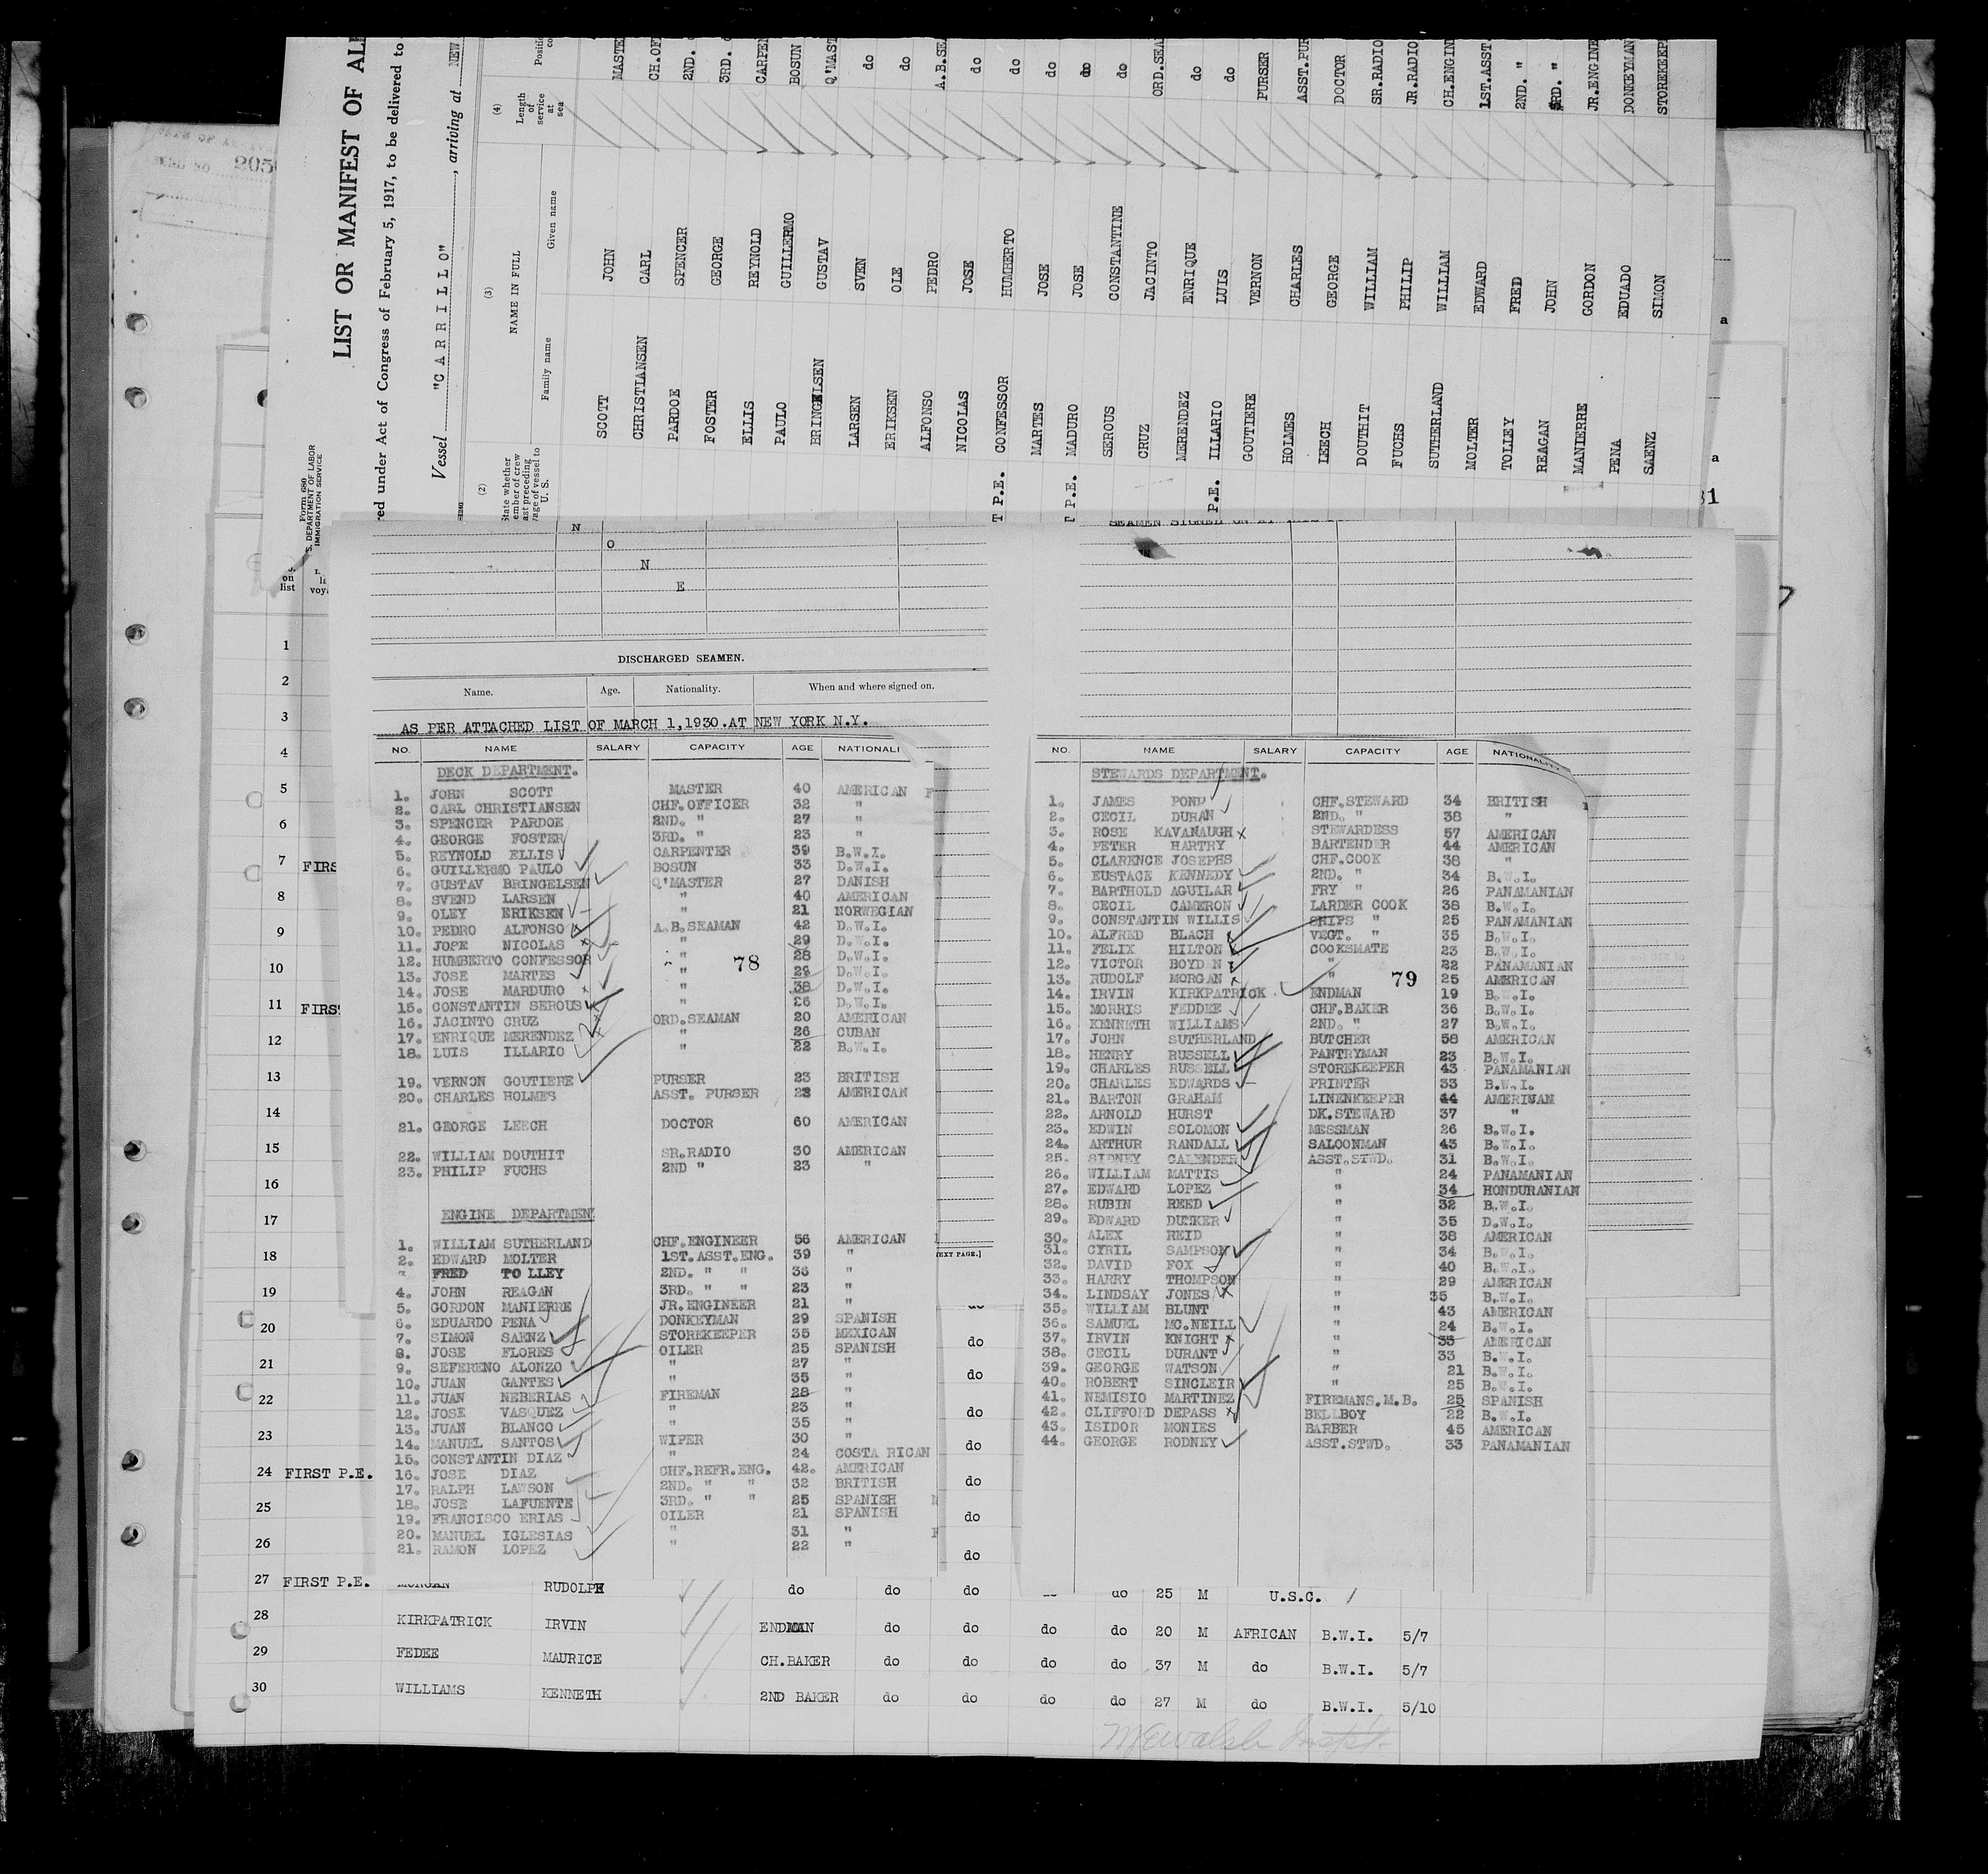 LIST OR MANIFEST OF
red under Act of Congress of February 5, 1917, to be delivered to
Vessel "CARRILLO", arriving at NEW
Form 680
S. DEPARTMENT OF LABOR
IMMIGRATION SERVICE
(2) (3) (4)
State whether
NAME IN FULL
Family name Given name
Length of service at sea
SCOTT JOHN
CHRISTIANSEN CARL CH.OF
PARDOE SPENCER 2ND.
FOSTER GEORGE 3RD.
ELLIS REYNOLD CARPEN
PAULO GUILLERMO BOSUN
BRINGELSEN GUSTAV Q'MAST
LARSEN SVEN do
ERIKSEN OLE do
ALFONSO PEDRO A.B.SEA
NICOLAS JOSE do
T P.E. CONFESSOR HUMBERTO do
MARTES JOSE do
T P.E. MADURO JOSE do
SEROUS CONSTANTINE do
CRUZ JACINTO ORD.SEA
MERENDEZ ENRIQUE do
P.E. ILLARIO LUIS do
GOUTIERE VERNON PURSER
HOLMES CHARLES ASST.PUR
LEECH GEORGE DOCTOR
DOUTHIT WILLIAM SR.RADIO
FUCHS PHILIP JR.RADIO
SUTHERLAND WILLIAM CH.ENGIN
MOLTER EDWARD 1ST.ASST.
TOLLEY FRED 2ND. "
REAGAN JOHN 3RD. "
MANIERRE GORDON JR.ENGINE
PENA EDUADO DONKEYMAN
SAENZ SIMON STOREKEEP
N
O
N
E
DISCHARGED SEAMEN.
Name. Age. Nationality. When and where signed on.
AS PER ATTACHED LIST OF MARCH 1,1930.AT NEW YORK N.Y.
NO. NAME SALARY CAPACITY AGE NATIONALI
DECK DEPARTMENT.
1. JOHN SCOTT MASTER 40 AMERICAN
2. CARL CHRISTIANSEN CHF.OFFICER 32 "
3. SPENCER PARDOE 2ND. " 27 "
4. GEORGE FOSTER 3RD. " 23 "
5. REYNOLD ELLIS CARPENTER 39 B.W.I.
6. GUILLERMO PAULO BOSUN 33 D.W.I.
7. GUSTAV BRINGELSEN Q'MASTER 27 DANISH
8. SVEND LARSEN " 40 AMERICAN
9. OLEY ERIKSEN " 21 NORWEGIAN
10. PEDRO ALFONSO A.B.SEAMAN 42 D.W.I.
11. JOSE NICOLAS " 29 D.W.I.
12. HUMBERTO CONFESSOR " 28 D.W.I.
13. JOSE MARTES " 29 D.W.I.
14. JOSE MARDURO " 38 D.W.I.
15. CONSTANTIN SEROUS " 26 D.W.I.
16. JACINTO CRUZ ORD.SEAMAN 20 AMERICAN
17. ENRIQUE MERENDEZ " 26 CUBAN
18. LUIS ILLARIO " 22 B.W.I.
19. VERNON GOUTIERE PURSER 23 BRITISH
20. CHARLES HOLMES ASST. PURSER 23 AMERICAN
21. GEORGE LEECH DOCTOR 60 AMERICAN
22. WILLIAM DOUTHIT SR.RADIO 30 AMERICAN
23. PHILIP FUCHS 2ND " 23 "
78
ENGINE DEPARTMEN
1. WILLIAM SUTHERLAND CHF.ENGINEER 56 AMERICAN
2. EDWARD MOLTER 1ST.ASST.ENG. 39 "
FRED TO LLEY 2ND. " " 36 "
4. JOHN REAGAN 3RD. " " 23 "
5. GORDON MANIERRE JR.ENGINEER 21 "
6. EDUARDO PENA DONKEYMAN 29 SPANISH
7. SIMON SAENZ STOREKEEPER 35 MEXICAN
8. JOSE FLORES OILER 25 SPANISH
9. SEFERENO ALONZO " 27 "
10. JUAN GANTES " 35 "
11. JUAN NEBERIAS FIREMAN 28 "
12. JOSE VASQUEZ " 23 "
13. JUAN BLANCO " 35 "
14. MANUEL SANTOS WIPER 30 "
15. CONSTANTIN DIAZ " 24 COSTA RICAN
16. JOSE DIAZ CHF.REFR.ENG. 42. AMERICAN
17. RALPH LAWSON 2ND. " " 32 BRITISH
18. JOSE LAFUENTE 3RD. " " 25 SPANISH
19. FRANCISCO ERIAS OILER 21 SPANISH
20. MANUEL IGLESIAS " 31 "
21. RAMON LOPEZ " 22 "
NO. NAME SALARY CAPACITY AGE NATIONALITY
STEWARDS DEPARTMENT.
1. JAMES POND CHF.STEWARD 34 BRITISH
2. CECIL DURAN 2ND. " 38 "
3. ROSE KAVANAUGH STEWARDESS 57 AMERICAN
4. PETER HARTRY BARTENDER 44 AMERICAN
5. CLARENCE JOSEPHS CHF.COOK 38 "
6. EUSTACE KENNEDY 2ND. " 34 B.W.I.
7. BARTHOLD AGUILAR FRY " 26 PANAMANIAN
8. CECIL CAMERON LARDER COOK 38 B.W.I.
9. CONSTANTIN WILLIS SHIPS " 25 PANAMANIAN
10. ALFRED BLACH VEGT. " 35 B.W.I.
11. FELIX HILTON COOKSMATE 23 B.W.I.
12. VICTOR BOYDEN " 22 PANAMANIAN
13. RUDOLF MORGAN " 25 AMERICAN
14. IRVIN KIRKPATRICK ENDMAN 19 B.W.I.
15. MORRIS FEDDEE CHF.BAKER 36 B.W.I.
16. KENNETH WILLIAMS 2ND. " 27 B.W.I.
17. JOHN SUTHERLAND BUTCHER 58 AMERICAN
18. HENRY RUSSELL PANTRYMAN 23 B.W.I.
19. CHARLES RUSSELL STOREKEEPER 43 PANAMANIAN
20. CHARLES EDWARDS PRINTER 33 B.W.I.
21. BARTON GRAHAM LINENKEEPER 44 AMERICAN
22. ARNOLD HURST DK.STEWARD 37 "
23. EDWIN SOLOMON MESSMAN 26 B.W.I.
24. ARTHUR RANDALL SALOONMAN 43 B.W.I.
25. SIDNEY CALENDER ASST.STWD. 31 B.W.I.
26. WILLIAM MATTIS " 24 PANAMANIAN
27. EDWARD LOPEZ " 34 HONDURANIAN
28. RUBIN REED " 32 B.W.I.
29. EDWARD DUNKER " 35 D.W.I.
30. ALEX REID " 38 AMERICAN
31. CYRIL SAMPSON " 34 B.W.I.
32. DAVID FOX " 40 B.W.I.
33. HARRY THOMPSON " 29 AMERICAN
34. LINDSAY JONES " 35 B.W.I.
35. WILLIAM BLUNT " 43 AMERICAN
36. SAMUEL MC.NEILL " 24 B.W.I.
37. IRVIN KNIGHT " 35 AMERICAN
38. CECIL DURANT " 33 B.W.I.
39. GEORGE WATSON " 21 B.W.I.
40. ROBERT SINCLEIR " 25 B.W.I.
41. NEMISIO MARTINEZ FIREMANS.M.B. 25 SPANISH
42. CLIFFORD DEPASS BELLBOY 22 B.W.I.
43. ISIDOR MONIES BARBER 45 AMERICAN
44. GEORGE RODNEY ASST.STWD. 33 PANAMANIAN
79
EXT PAGE.]
on
list
1
2
3
4
5
6
7 FIRS
8
9
10
11 FIRS
12
13
14
15
16
17
18
19
20 do
21 do
22 do
23 do
24 FIRST P.E. do
25 do
26 do
27 FIRST P.E. MORGAN RUDOLPH do do do do 25 M U.S.C.
28 KIRKPATRICK IRVIN ENDMAN do do do do 20 M AFRICAN B.W.I. 5/7
29 FEDEE MAURICE CH.BAKER do do do do 37 M do B.W.I. 5/7
30 WILLIAMS KENNETH 2ND BAKER do do do do 27 M do B.W.I. 5/10